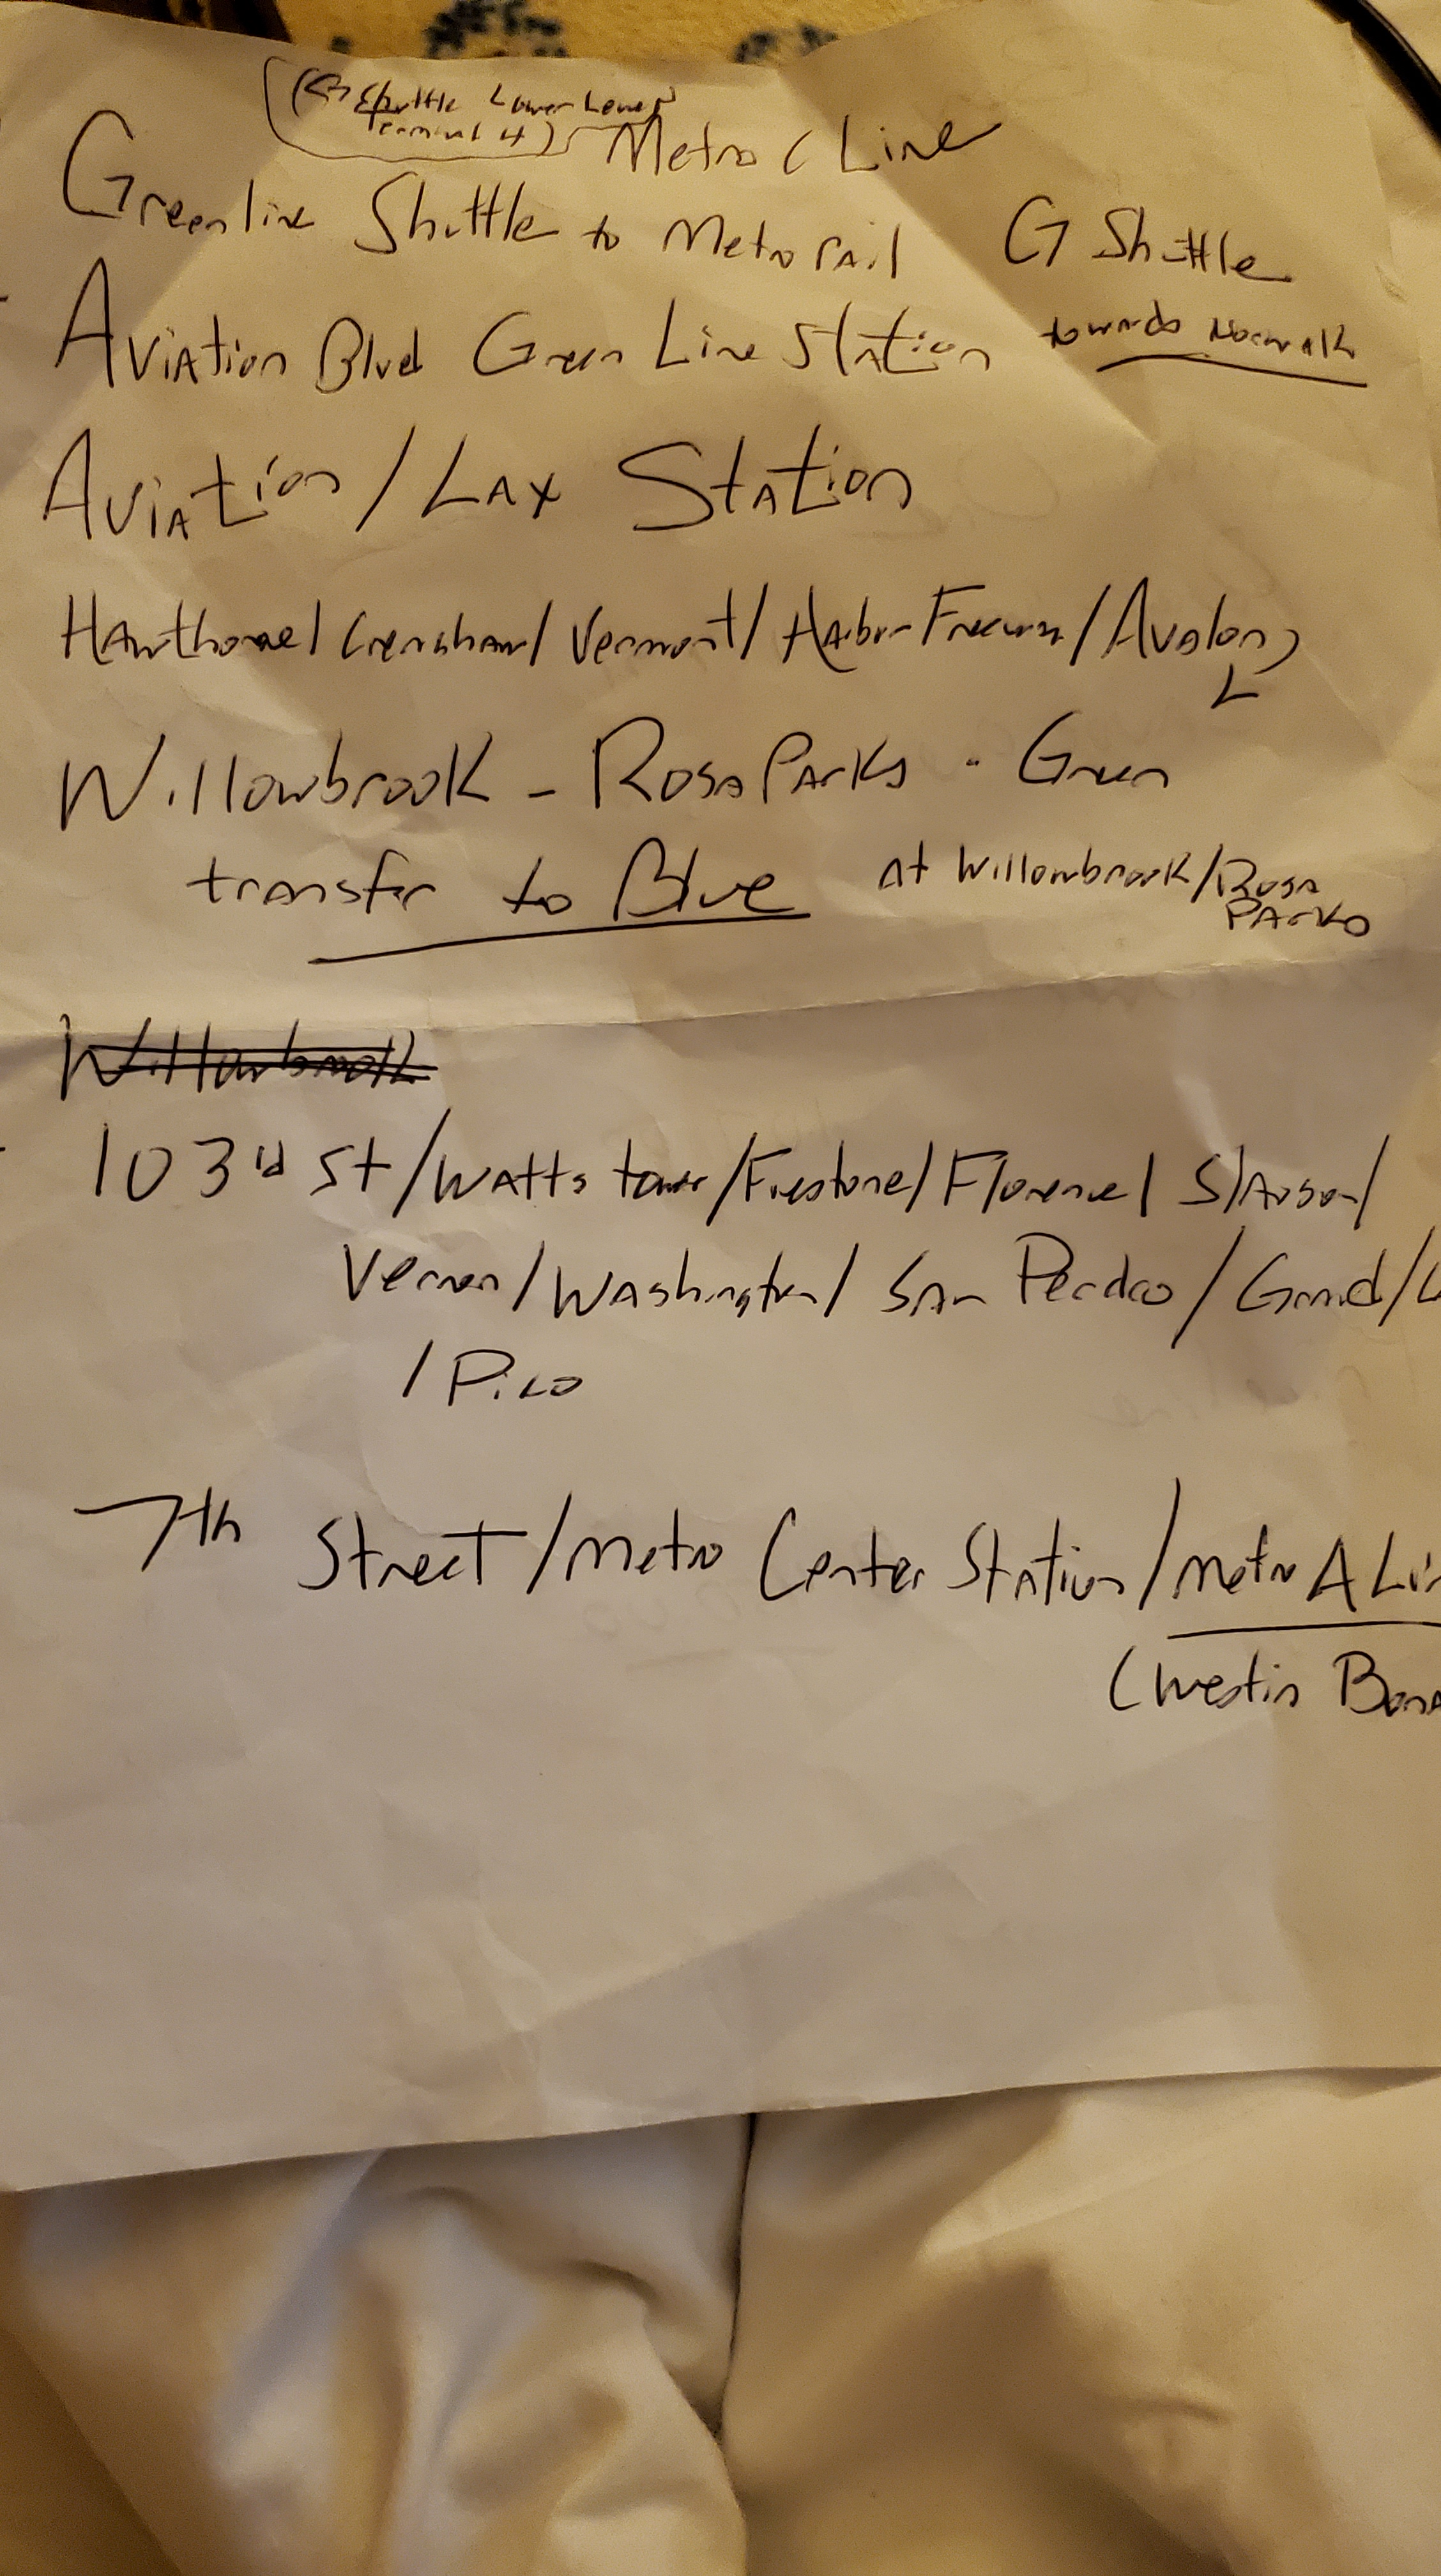 (G Shuttle Lower Level
Terminal 4)
Metro C Line
Greenline Shuttle to Metro rail
G Shuttle
towards Norwalk
Aviation Blvd Green Line Station
Aviation / LAX Station
Hawthorne / Crenshaw / Vermont / Harbor Freeway / Avalon
Willowbrook - Rosa Parks - Green
transfer to Blue at Willowbrook / Rosa
Parks
Willowbrook
103rd St / Watts tower / Firestone / Florence / Slauson /
Vernon / Washington / San Perdro / Grand / L
/ Pico
7th Street / Metro Center Station / Metro A Lin
(Westin Bona